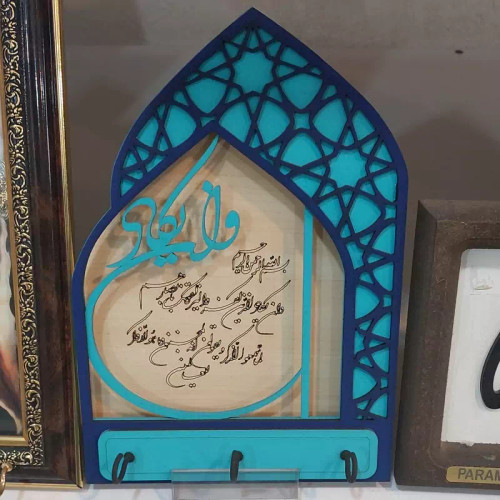 وان یکاد
بسم الله الرحمن الرحیم
وان یکاد الذین کفروا لیزلقونک بابصارهم
لما سمعوا الذکر و یقولون انه لمجنون و ما هو الا ذکر
للعالمین
PARAM